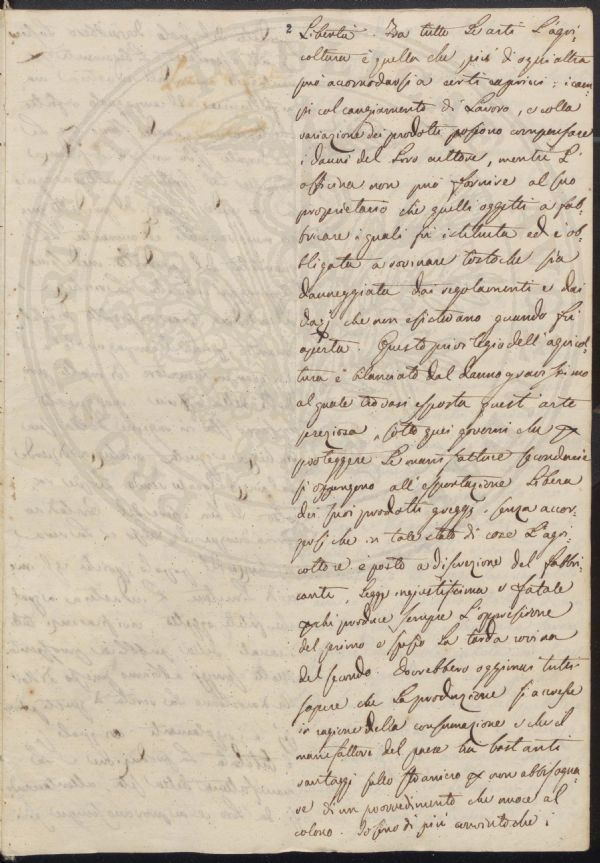 2
Libertà. Da tutte Le arti L'agri-
coltura è quella che più d'ogni altra
può accomodarsi a certi caprici: i cam-
pi col cangiamento di Lavoro, e colla
variazione dei prodotti possono compensare
i danni del Loro cultore, mentre L'
officina non può fornire al suo
proprietario che quelli oggetti a fab-
bricare i quali fu istituita ed è ob-
bligata a rovinare tostoche sia
danneggiata dai regolamenti e dai
dazj che non esistevano quando fu
aperta. Questo privilegio dell'agricol-
tura è bilanciato dal danno gravissimo
al quale trovasi esposta quest'arte
preziosa sotto quei governi che
proteggere Le manifatture secondarie
si oppongono all'esportazione Libera
dei suoi prodotti greggi, senza accor-
gersi che in tale stato di cose L'agri-
coltore è posto a discrezione del fabbri-
cante, Legge ingiustissima e fatale
che produce sempre L'oppressione
del primo e spesso La tarda rovina
del secondo. Dovrebbero oggimai tutti
sapere che La produzione si accresce
in ragione della consumazione e che il
manifattore del paese ha bastanti
vantaggi sullo straniero non abbisogna-
re di un provvedimento che nuoce al
colono. Io sono di più convinto che i